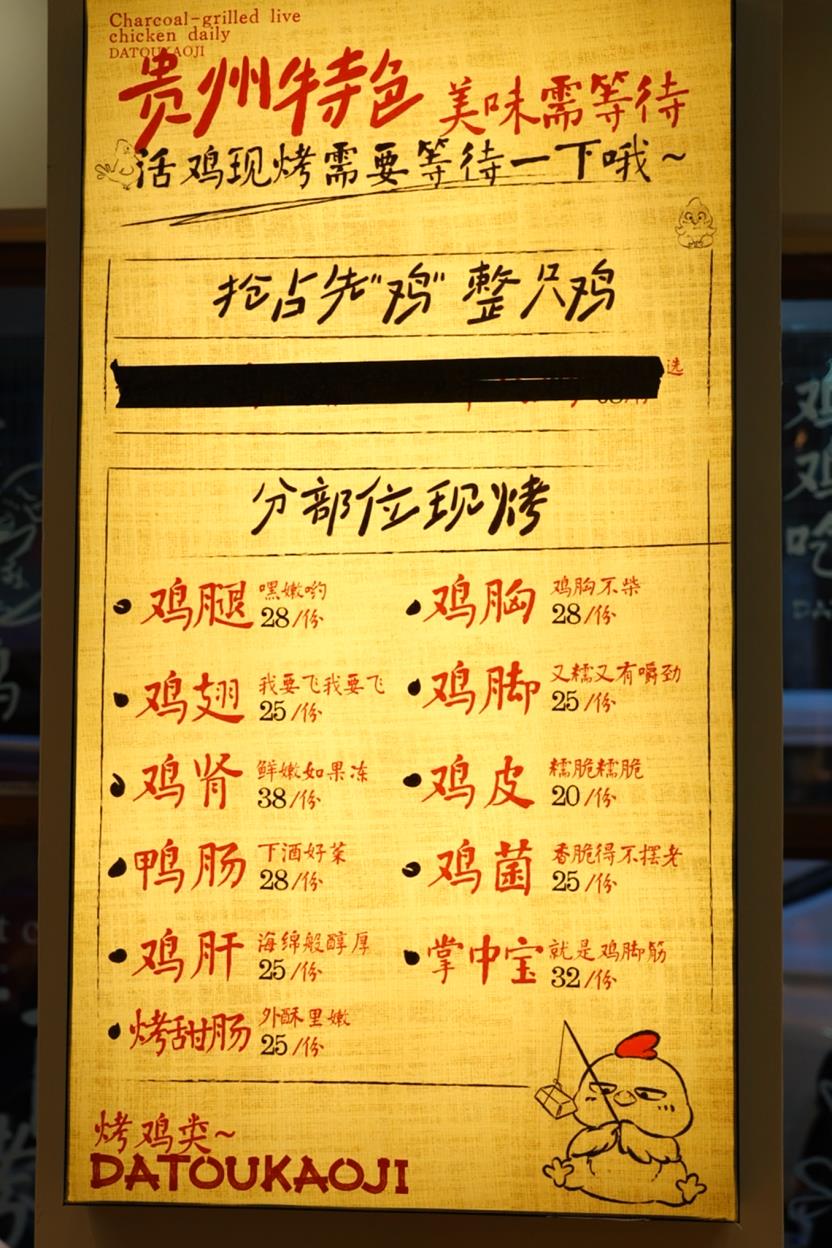 Charcoal-grilled live
chicken daily
DATOUKAOJI
贵州特色 美味需等待
活鸡现烤需要等待一下哦~
抢占先"鸡" 整只鸡
选
分部位现烤
鸡腿 嘿嫩哟 28/份
鸡胸 鸡胸不柴 28/份
鸡翅 我要飞我要飞 25/份
鸡脚 又糯又有嚼劲 25/份
鸡肾 鲜嫩如果冻 38/份
鸡皮 糯脆糯脆 20/份
鸭肠 下酒好菜 28/份
鸡菌 香脆得不摆老 25/份
鸡肝 海绵般醇厚 25/份
掌中宝 就是鸡脚筋 32/份
烤甜肠 外酥里嫩 25/份
烤鸡类~
DATOUKAOJI
鸡
鸡
吃